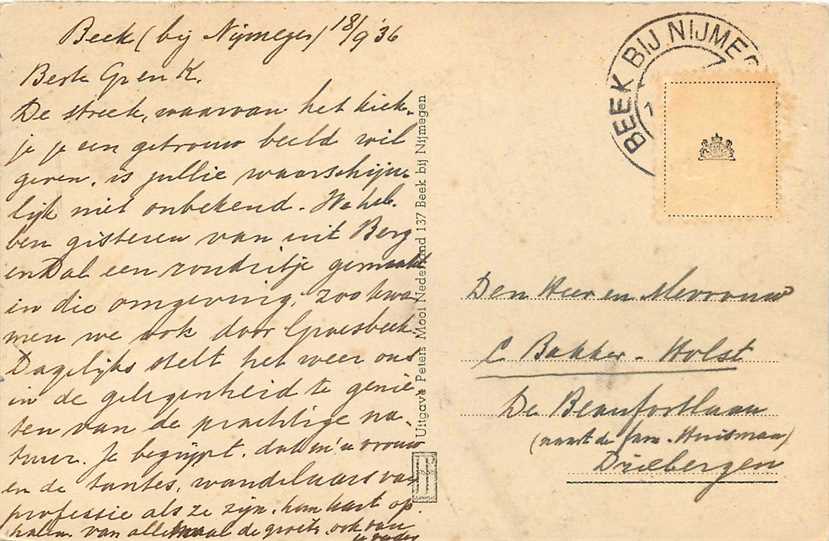 Beek (bij Nijmegen) 18/9 '36
Beste G en K.
De streek, waarvan het kiek-
je je een getrouw beeld wil
geven, is jullie waarschijn-
lijk niet onbekend. We heb-
ben gisteren van uit Berg
en Dal een rondritje gemaakt
in die omgeving, zoo kwa-
men we ook door Groesbeek.
Dagelijks stelt het weer ons
in de gelegenheid te genie-
ten van de prachtige na-
tuur. Je begrijpt, dat m'n vrouw
en de tantes, wandelaars van
professie als ze zijn, hun hart op
halen. van allemaal de groeten, ook van
je vader
Uitgave Peters Mooi Nederland 137 Beek bij Nijmegen
BEEK BIJ NIJMEG
Den Heer en Mevrouw
C Bakker-Holst
De Beaufortlaan
(naast de fam. Huisman)
Driebergen